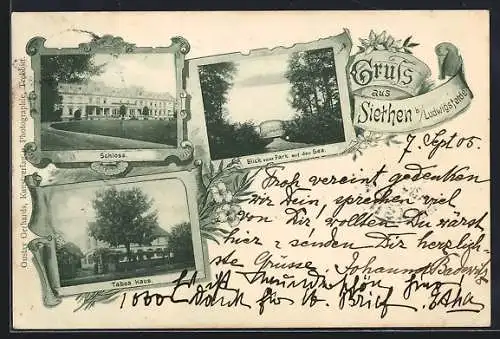 Gruss
aus
Siethen b/Ludwigsfelde
Schloss.
Blick vom Park auf den See.
Tabea Haus.
Gustav Gerhards, Kunstverlag u. Photographie, Trebbin.
7 Sept 05.
Froh vereint gedenken
wir Dein, sprechen viel
von Dir, wollten Du wärst
hier & senden Dir herzlich-
ste Grüsse. Johanna
1000 Dank für d. Brief.